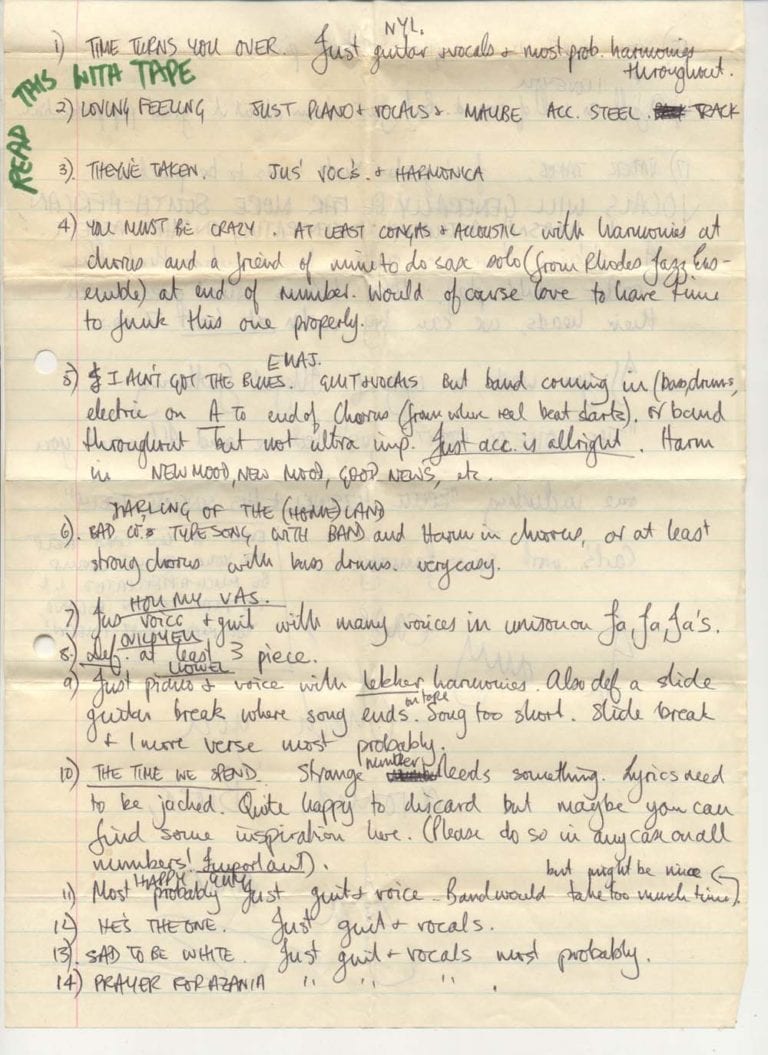 NYL.
1) TIME TURNS YOU OVER. Just guitar + vocals + most prob. harmonies
throughout.
READ THIS WITH TAPE
2) LOVING FEELING JUST PIANO + VOCALS + MAYBE ACC. STEEL. TRACK
3) THEY'VE TAKEN. JUS' VOC'S. + HARMONICA
4) YOU MUST BE CRAZY. AT LEAST CONGAS + ACCOUSTIC with harmonies at
chorus and a friend of mine to do sax solo (from Rhodes Jazz Ens-
emble) at end of number. Would of course love to have time
to funk this one properly.
EMAJ.
5) I AIN'T GOT THE BLUES. GUIT + VOCALS But band coming in (bass, drums,
electric on A to end of Chorus (from where real beat starts). or band
throughout but not ultra imp. Just acc. is allright. Harm
in NEW MOOD, NEW MOOD, GOOD NEWS, etc.
DARLING OF THE (HOME)LAND
6). BAD CO. TYPE SONG WITH BAND and Harm in chorus, or at least
strong chorus with bass drums. very easy.
HOU MY VAS.
7) Jus voice + guit with many voices in unison on Ja, Ja, Ja's.
8. Def. at least 3 piece.
9) Just piano + voice with lekker harmonies. Also def a slide
guitar break where song ends on tape. Song too short. Slide break
+ 1 more verse most probably.
10) THE TIME WE SPEND. Strange number Needs something. Lyrics need
to be jacked. Quote happy to discard but maybe you can
find some inspiration here. (Please do so in any case on all
numbers! Important).
but might be nice
HAPPY
11) Most probably Just guit + voice. Band would take too much time).
12) HE'S THE ONE. Just guit + vocals.
13). SAD TO BE WHITE. Just guit + vocals most probably.
14) PRAYER FOR AZANIA " " " .